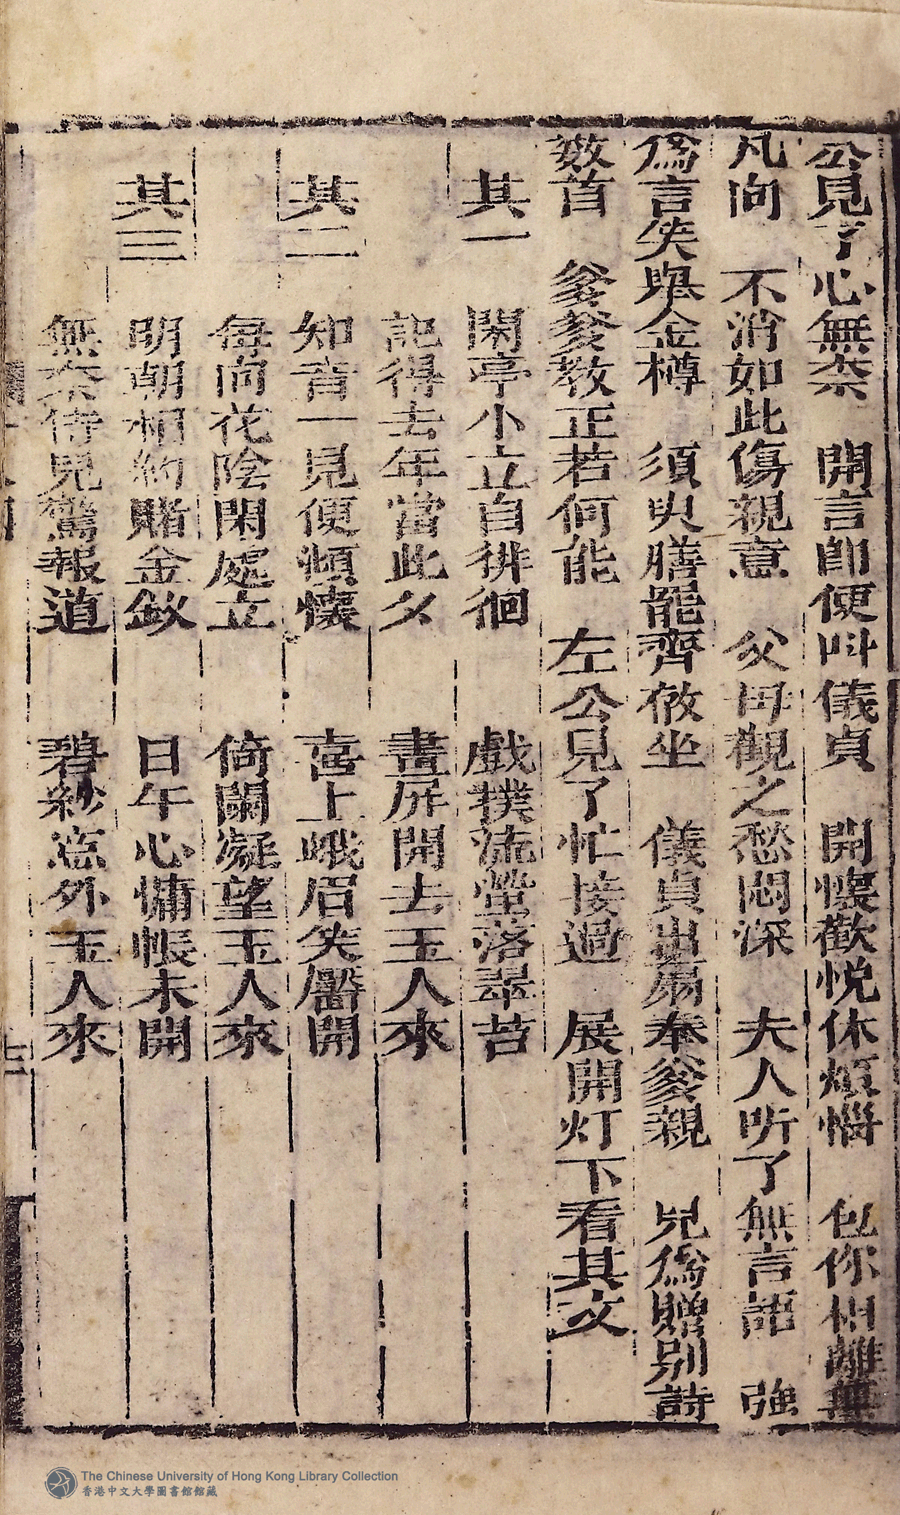 公見了心無柰　開言即便叫儀貞　開懷歡悅休煩惱　包你相離無
凡向　不消如此傷親意　父母觀之愁悶深　夫人听了無言語　強
爲言笑舉金樽　須臾膳罷齊傚坐　儀貞出易奉爹親　児爲贈別詩
数首　爹爹教正若何能　左公見了忙接過　展開灯下看其文
其一　閑亭小立自徘徊　戲撲流螢落翠苔
記得去年當此夕　畫屏開去玉人來
其二　知音一見便傾懷　喜上峨眉笑靨開
每向花陰閑處立　倚闌凝望玉人來
其三　明朝相約賭金釵　日午心慵帳未開
無柰侍兒驚報道　碧紗窓外玉人來
The Chinese University of Hong Kong Library Collection
香港中文大學圖書館館藏